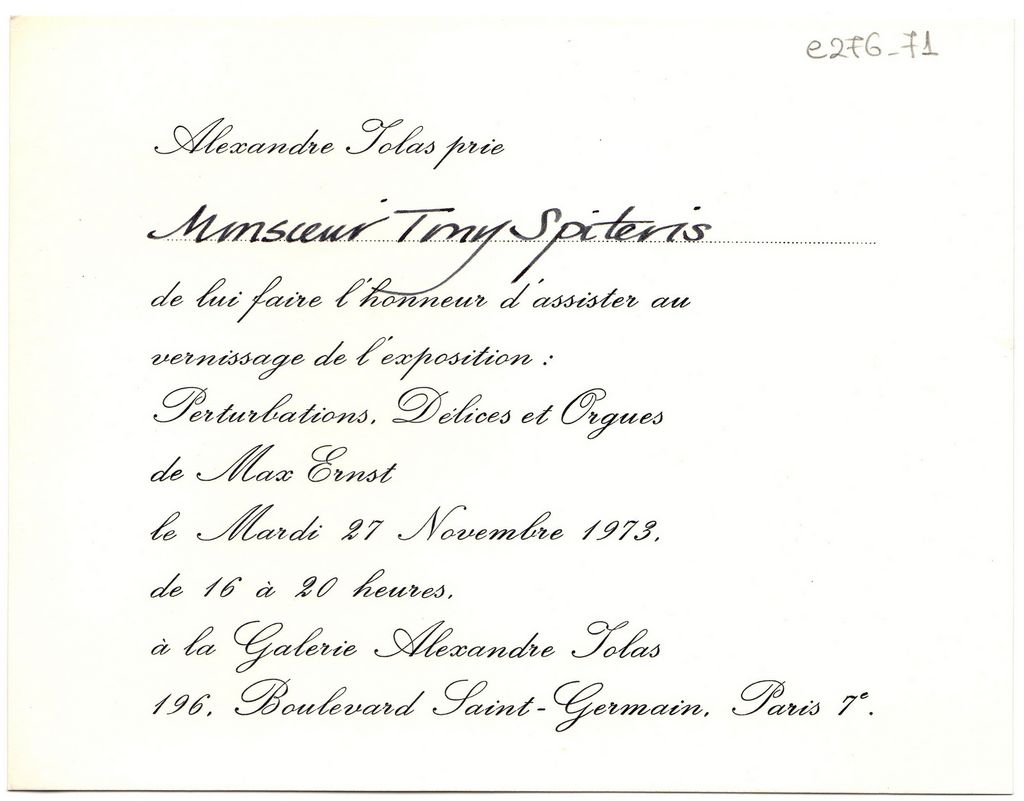 e276-71
Alexandre Iolas prie
Monsieur Tony Spiteris
de lui faire l'honneur d'assister au
vernissage de l'exposition :
Perturbations, Délices et Orgues
de Max Ernst
le Mardi 27 Novembre 1973,
de 16 à 20 heures,
à la Galerie Alexandre Iolas
196, Boulevard Saint-Germain, Paris 7e.